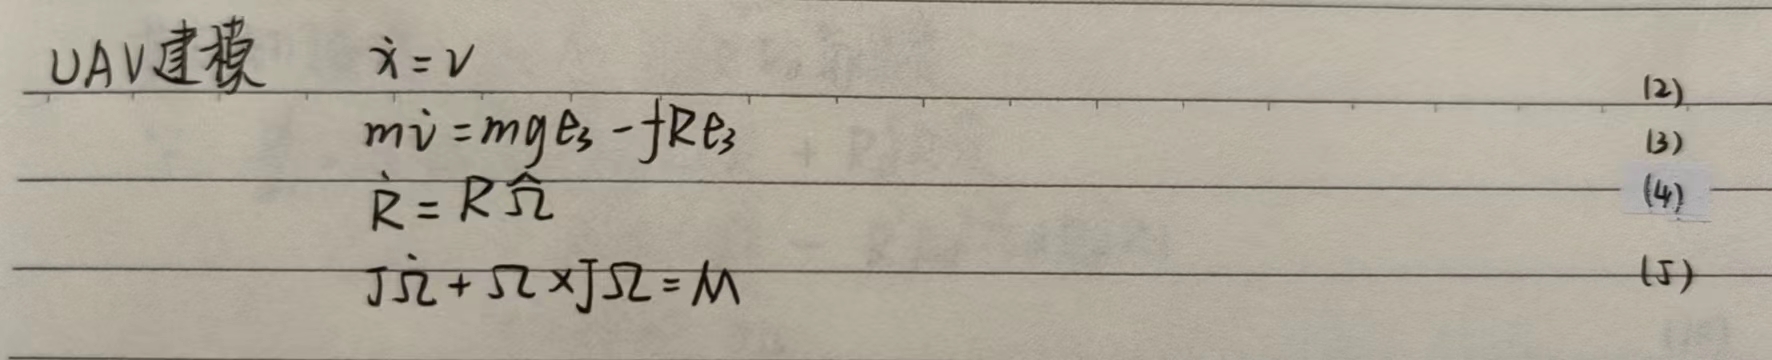 UAV建模 ẋ = v (2)
mv̇ = mge₃ - fRe₃ (3)
Ṙ = RΩ̂ (4)
JΩ̇ + Ω × JΩ = M (5)